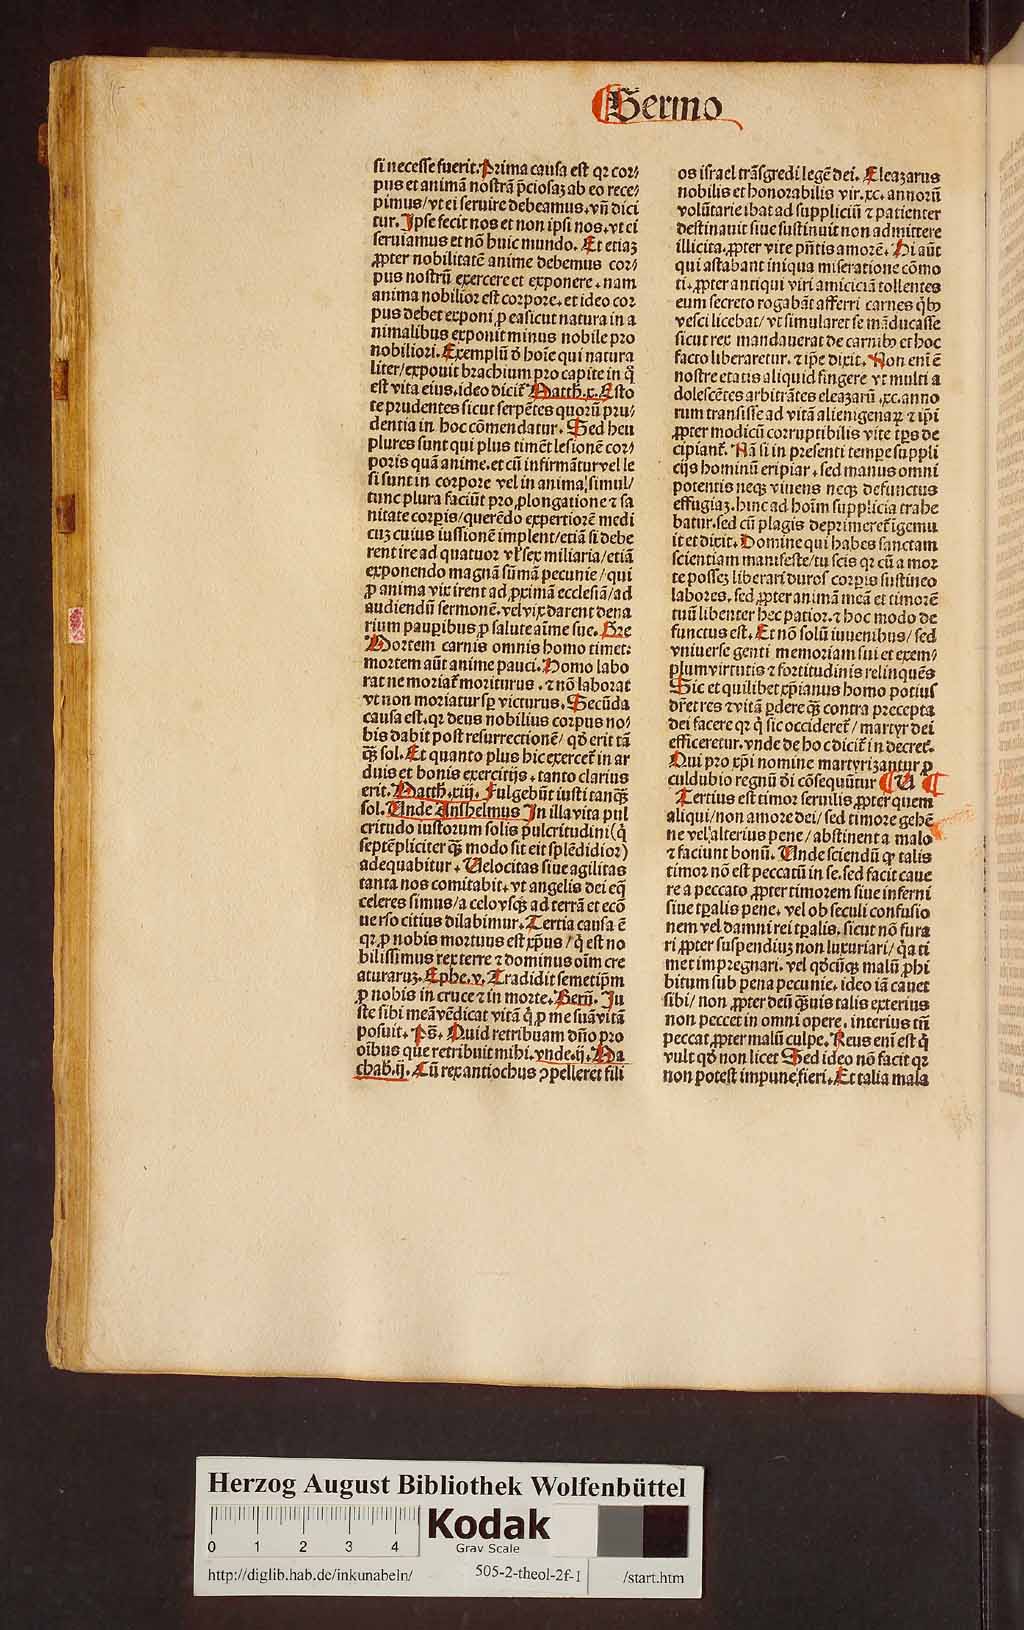 Sermo
si necesse fuerit. Prima causa est qꝛ cor⸗
pus et animā nostrā p̄ciosaꝫ ab eo rece⸗
pimus/vt ei seruire debeamus. vn̄ dici
tur. Ipse fecit nos et non ipsi nos. vt ei
seruiamus et nō huic mundo. Et etiaꝫ
ꝓpter nobilitatē anime debemus cor⸗
pus nostrū exercere et exponere. nam
anima nobilior est corpore. et ideo cor
pus debet exponi ꝓ ea sicut natura in a
nimalibus exponit minus nobile pro
nobiliori. Exemplū ō hoīe qui natura
liter/exponit brachium pro capite in q̄
est vita eius. ideo dicit᷑ Matth.x. Esto
te prudentes sicut serpētes quorū pru⸗
dentia in hoc cōmendatur. Sed heu
plures sunt qui plus timēt lesionē cor⸗
poris quā anime. et cū infirmātur vel le
si sunt in corpore vel in anima/simul/
tunc plura faciūt pro prolongatione ⁊ sa
nitate corpis/querēdo expertiorē medi
cuꝫ cuius iussionē implent/etiā si debe
rent ire ad quatuor vl̕ sex miliaria/etiā
exponendo magnā sūmā pecunie/qui
ꝓ anima vix irent ad ꝓximā ecclesiā/ad
audiendū sermonē. vel vix darent dena
rium pauꝑibus ꝓ salute aīme sue. Gre
Mortem carnis omnis homo timet:
mortem aūt anime pauci. Homo labo
rat ne moriat᷑ moriturus. ⁊ nō laborat
vt non moriatur sꝑ victurus. Secūda
causa est. qꝛ deus nobilius corpus no⸗
bis dabit post resurrectionē/qd̓ erit tā
qꝫ̄ sol. Et quanto plus hic exercet᷑ in ar
duis et bonis exercitijs. tanto clarius
erit. Matth.xiij. Fulgebūt iusti tanqꝫ̄
sol. Unde Anshelmus In illa vita pul
critudo iustorum solis pulcritudini(q̄
septēpliciter qꝫ̄ modo sit eit splēdidior)
adequabitur. Uelocitas siue agilitas
tanta nos comitabit. vt angelis dei eq̄
celeres simus/a celo vsqꝫ ad terrā et ecō
uerso citius dilabimur. Tertia causa ē
qꝛ ꝓ nobis mortuus est xp̄us/q̄ est no
bilissimus rex terre ⁊ dominus oīm cre
aturaruꝫ. Ephe.v. Tradidit semetip̄m
ꝓ nobis in cruce ⁊ in morte. Bern̄. Ju
ste sibi meā vēdicat vitā q̄ ꝓ me suā vitā
posuit. Ps̄. Quid retribuam dn̄o pro
oībus que retribuit mihi. vnde.ij. Ma
chab̄.ij. Cū rex antiochus ꝯpelleret fili
os israel trāsgredi legē dei. Eleazarus
nobilis et honorabilis vir.xc.annorū
volūtarie ibat ad suppliciū ⁊ patienter
destinauit siue sustinuit non admittere
illicita. ꝓpter vite pn̄tis amorē. Hi aūt
qui astabant iniqua miseratione cōmo
ti. ꝓpter antiqui viri amiciciā tollentes
eum secreto rogabāt afferri carnes qͥbꝰ
vesci licebat/vt simularet se māducasse
sicut rex mandauerat de carnibꝰ et hoc
facto liberaretur. ⁊ ip̄e dixit. Non enī ē
nostre etatis aliquid fingere vt multi a
dolescētes arbitrātes eleazarū.xc.anno
rum transisse ad vitā alienigenaꝝ ⁊ ip̄i
ꝓpter modicū corruptibilis vite tp̄s de
cipiant᷑. Nā si in presenti tempe suppli
cijs hominū eripiar. sed manus omni
potentis neqꝫ viuens neqꝫ defunctus
effugiaꝫ. hinc ad hoīm supplicia trahe
batur. sed cū plagis deprimeret᷑ igemu
it et dixit. Domine qui habes sanctam
scientiam manifeste/tu scis qꝛ cū a mor
te posseꝫ liberari duros corpis sustineo
labores. sed ꝓpter animā meā et timorē
tuū libenter hec patior. ⁊ hoc modo de
functus est. Et nō solū iuuenibus/sed
vniuerse genti memoriam sui et exem⸗
plum virtutis ⁊ fortitudinis relinquēs
Sic et quilibet xp̄ianus homo potius
dr̄et res ⁊ vitā ꝑdere qꝫ̄ contra precepta
dei facere qꝛ q̄ sic occideret᷑/martyr dei
efficeretur. vnde de hoc dicit᷑ in decret᷑.
Qui pro xp̄i nomine martyrizantur ꝓ
culdubio regnū di̅ cōsequūtur U
Tertius est timor seruilis ꝓpter quem
aliqui/non amore dei/sed timore gehē
ne vel alterius pene/abstinent a malo
⁊ faciunt bonū. Unde sciendū qꝙ talis
timor nō est peccatū in se. sed facit caue
re a peccato ꝓpter timorem siue inferni
siue tꝑalis pene. vel ob seculi confusio
nem vel damni rei tꝑalis. sicut nō fura
ri ꝓpter suspendiuꝫ non luxuriari/q̄a ti
met impregnari. vel qd̓cūqꝫ malū ꝓhi
bitum sub pena pecunie. ideo iā cauet
sibi/non ꝓpter deū qꝫ̄uis talis exterius
non peccet in omni opere. interius tn̄
peccat ꝓpter malū culpe. Reus enī est q̄
vult qd̓ non licet Sed ideo nō facit qꝛ
non potest impune fieri. Et talia mala
Herzog August Bibliothek Wolfenbüttel
0 1 2 3 4
Kodak
Gray Scale
http://diglib.hab.de/inkunabeln/ 505-2-theol-2f-1 /start.htm